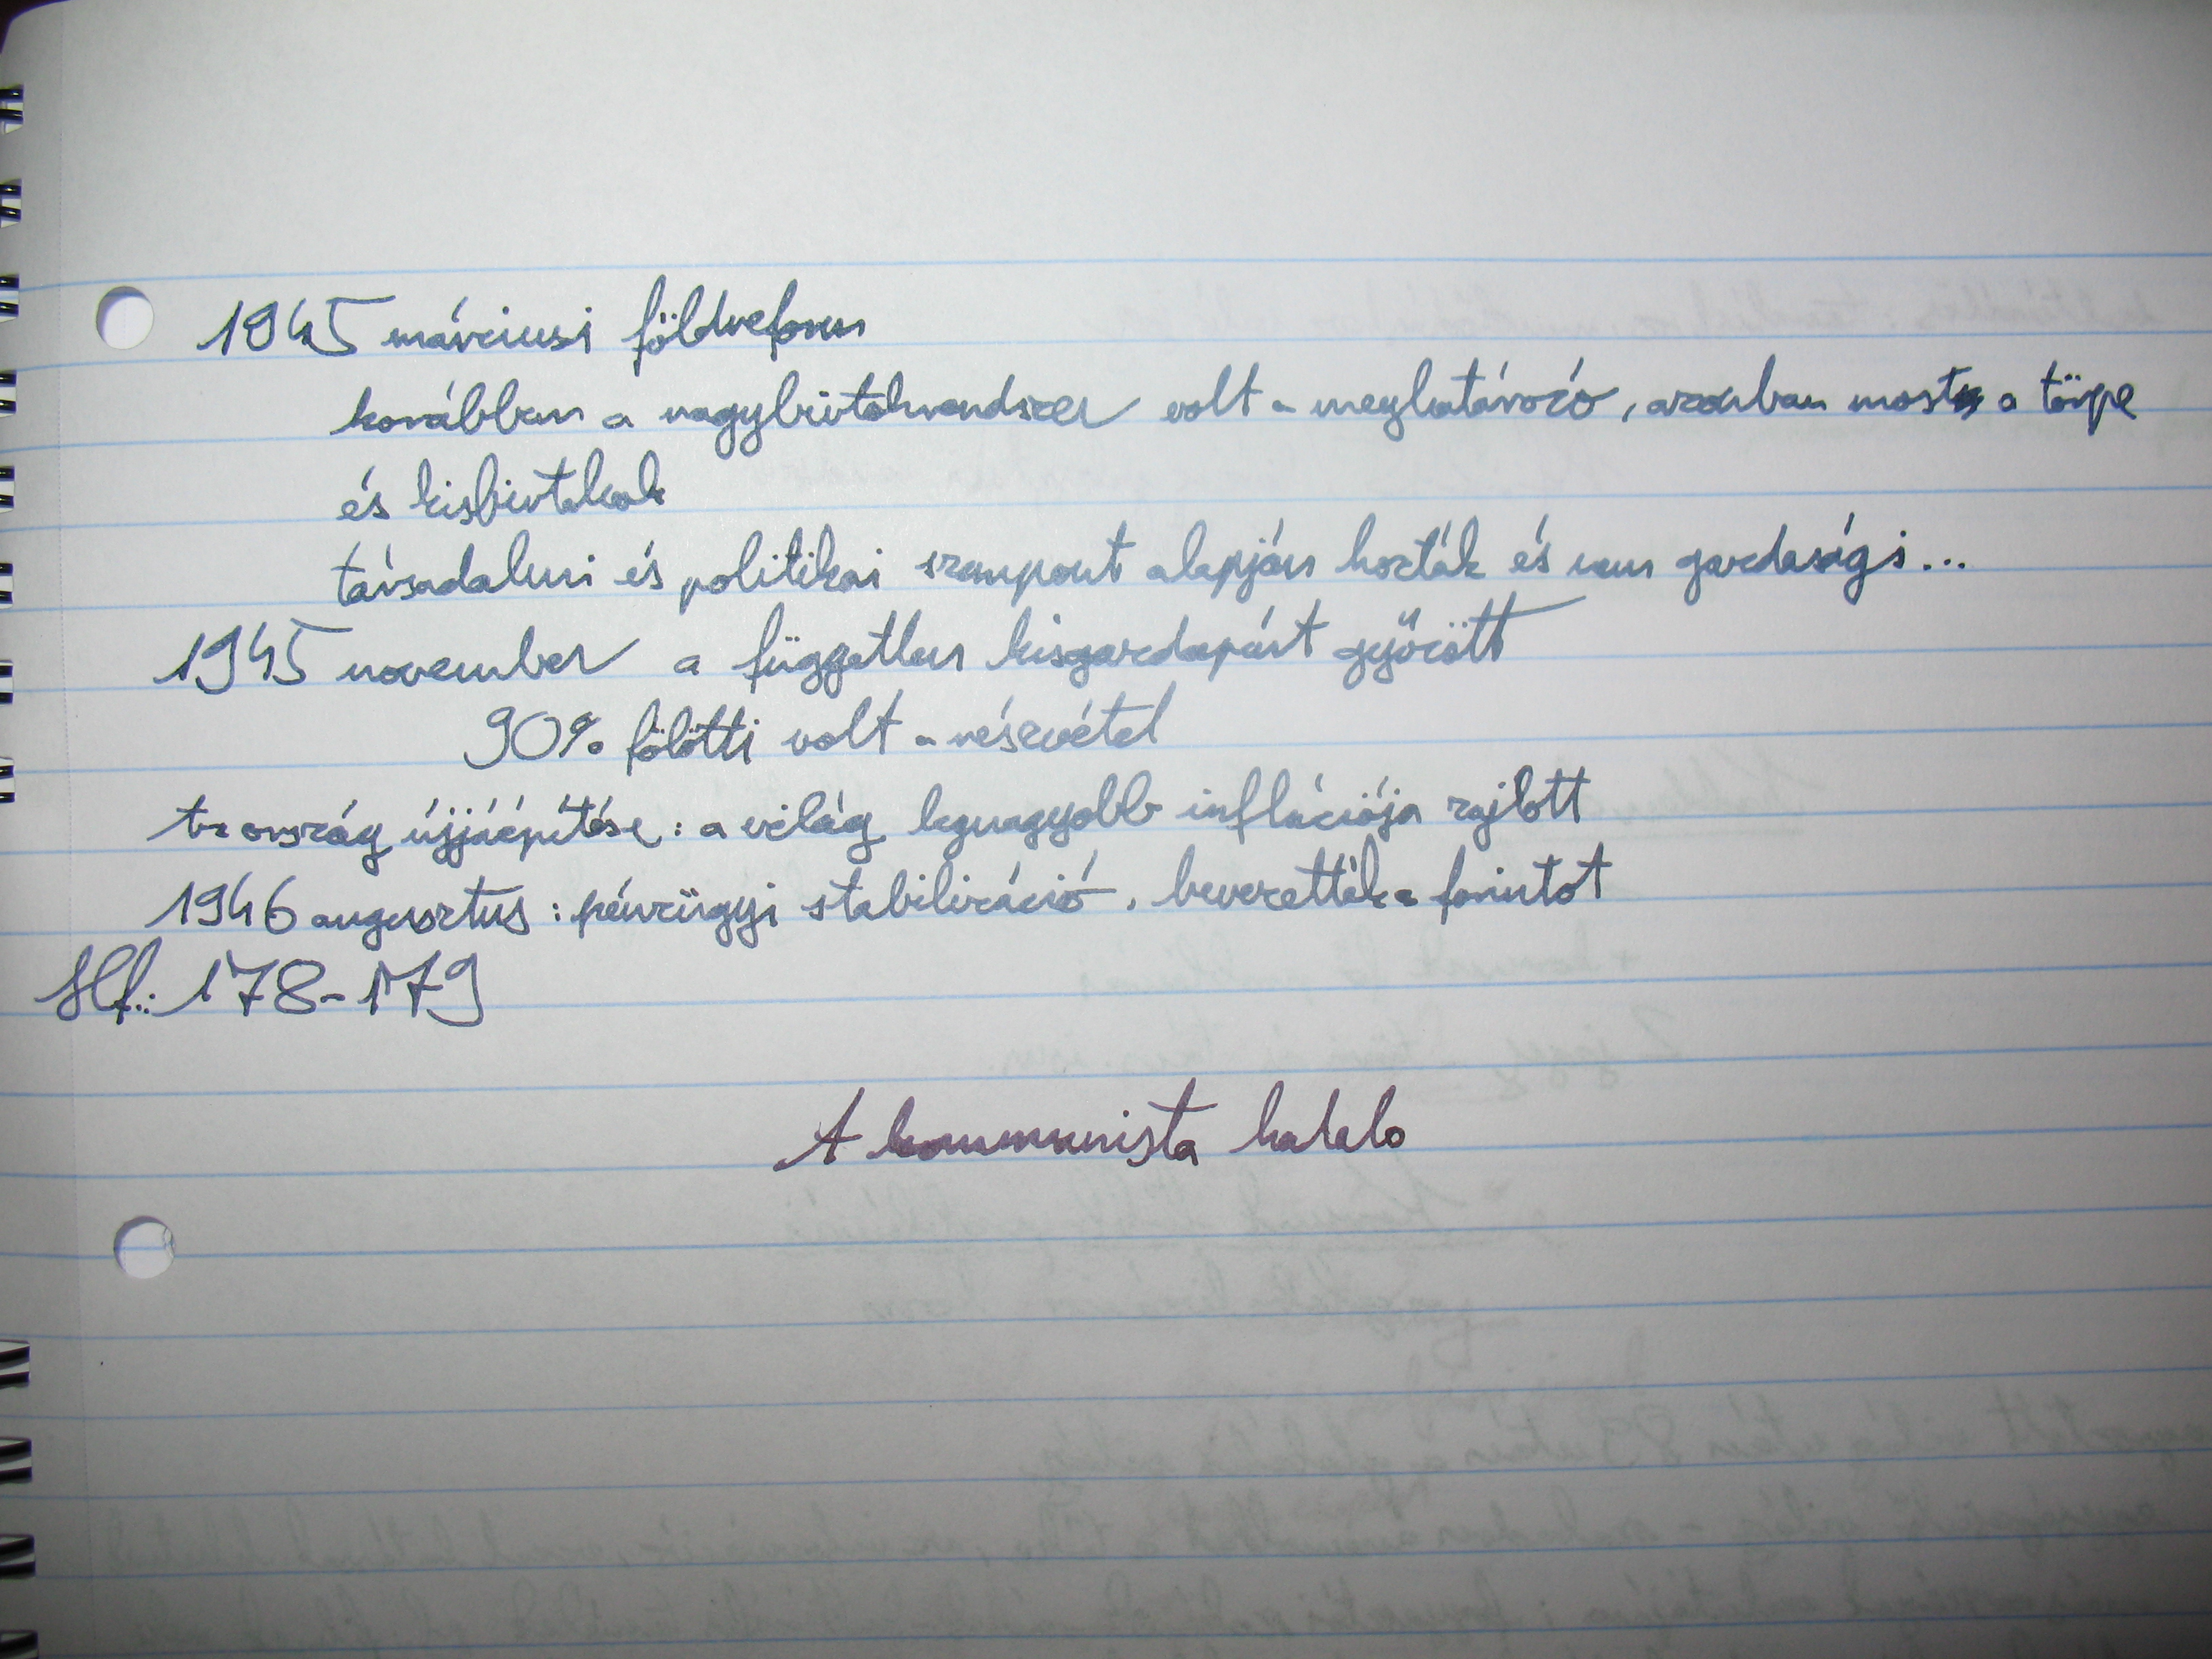 1945 márciusi földreform
korábban a nagybirtokrendszer volt a meghatározó, azonban most a törpe
és kisbirtokok
társadalmi és politikai szempont alapján hozták és nem gazdasági...
1945 november a független kisgazdapárt győzött
90% fölötti volt a részvétel
Az ország újjáépítése: a világ legnagyobb inflációja zajlott
1946 augusztus: pénzügyi stabilizáció, bevezették a forintot
Hf.: 178-179
A kommunista